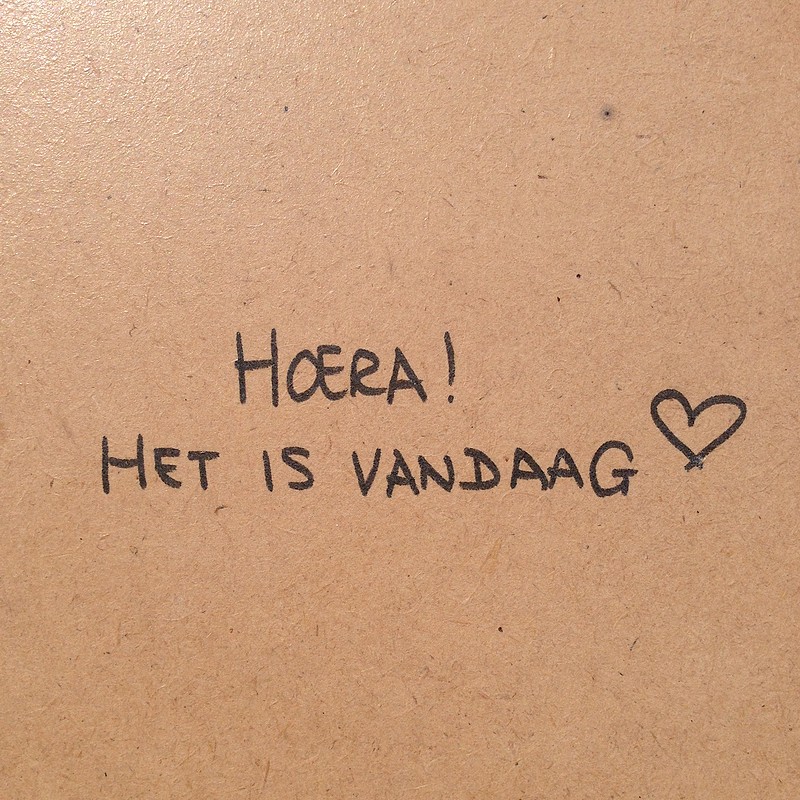 HOERA!
HET IS VANDAAG